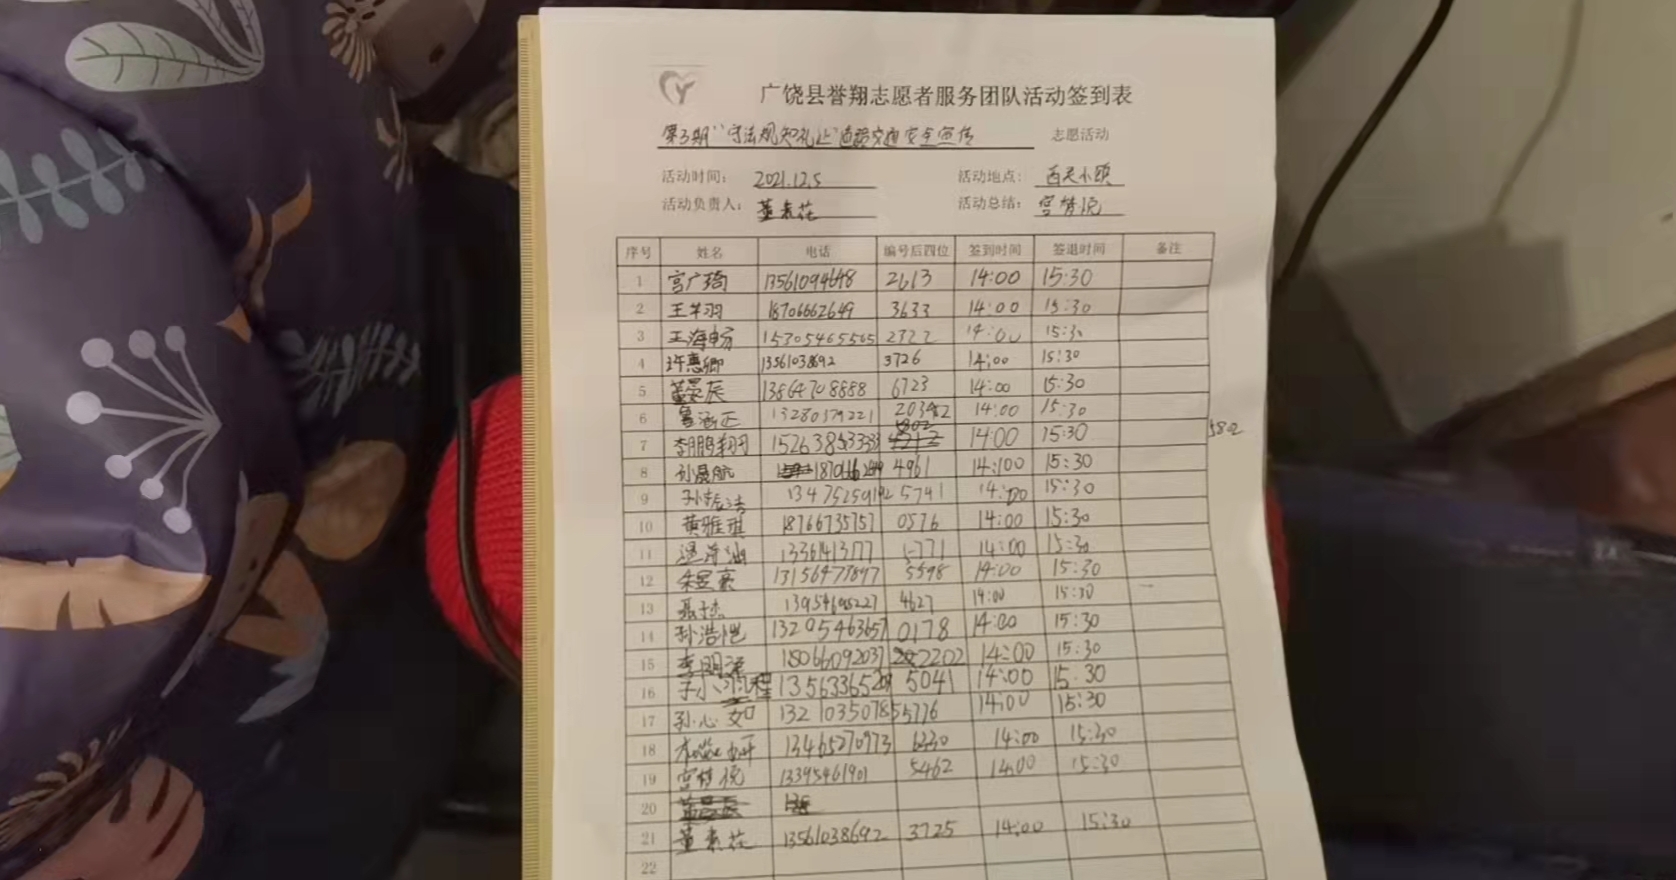 广饶县誉翔志愿者服务团队活动签到表
第3期"守法规知礼让"道路交通安全宣传 志愿活动
活动时间: 2021.12.5 活动地点:
活动负责人: 董素花 活动总结: 宫梦悦
序号 姓名 电话 编号后四位 签到时间 签退时间 备注
1 宫广琦 13561094648 2613 14:00 15:30
2 王羊羽 18706662649 3633 14:00 15:30
3 王海畅 15305465565 2322 14:00 15:30
4 许惠卿 13561038692 3726 14:00 15:30
5 董晏辰 13864708888 6723 14:00 15:30
6 13280179221 14:00 15:30
7 李鹏翔 15263853333 5802 14:00 15:30 5802
8 孙晟航 4961 14:00 15:30
9 13475259192 5741 14:00 15:30
10 黄雅琪 18766735757 0576 14:00 15:30
11 14:00 15:30
12 朱昱豪 13156477897 5598 14:00 15:30
13 聂于杰 13954695227 4627 14:00 15:30
14 孙浩恺 13205463657 0178 14:00 15:30
15 李明泽 18066092037 2202 14:00 15:30
16 5041 14:00 15:30
17 孙心如 13210350785 5776 14:00 15:30
18 13465270973 6230 14:00 15:30
19 宫梦悦 13395461901 5462 14:00 15:30
20
21 董素花 13561038692 3725 14:00 15:30
22